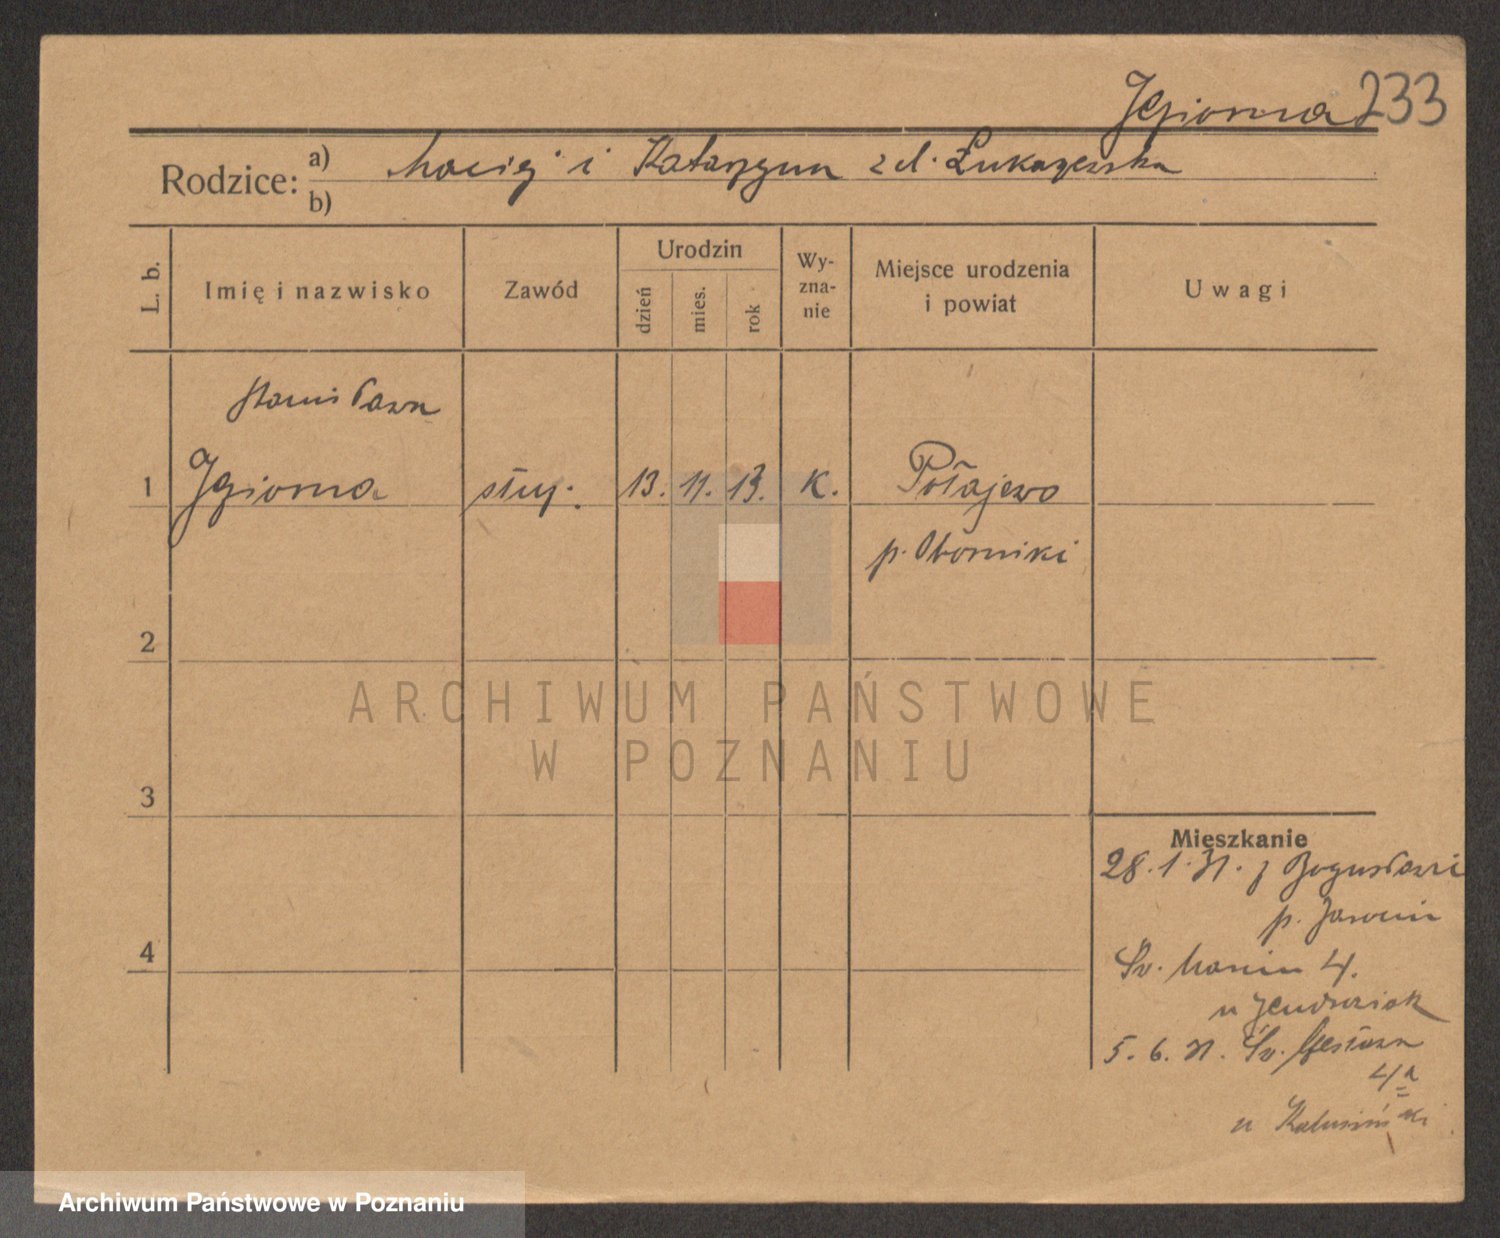 Jgiorna 233
Rodzice: a) Maciej i Katarzyna z d. Łukaszewska
b)
L. b.
Imię i nazwisko
Zawód
Urodzin
dzień
mies.
rok
Wy-
zna-
nie
Miejsce urodzenia
i powiat
Uwagi
Stanisława
1 Jgiorna służ. 13. 11. 13. K. Połajewo
p. Oborniki
2
3
4
Mieszkanie
28. 1. 31. z Bogusławi
p. Jarocin
Św. Marcin 4.
u
5. 6. 31. Św. Czesława
4a
u
ARCHIWUM PAŃSTWOWE
W POZNANIU
Archiwum Państwowe w Poznaniu